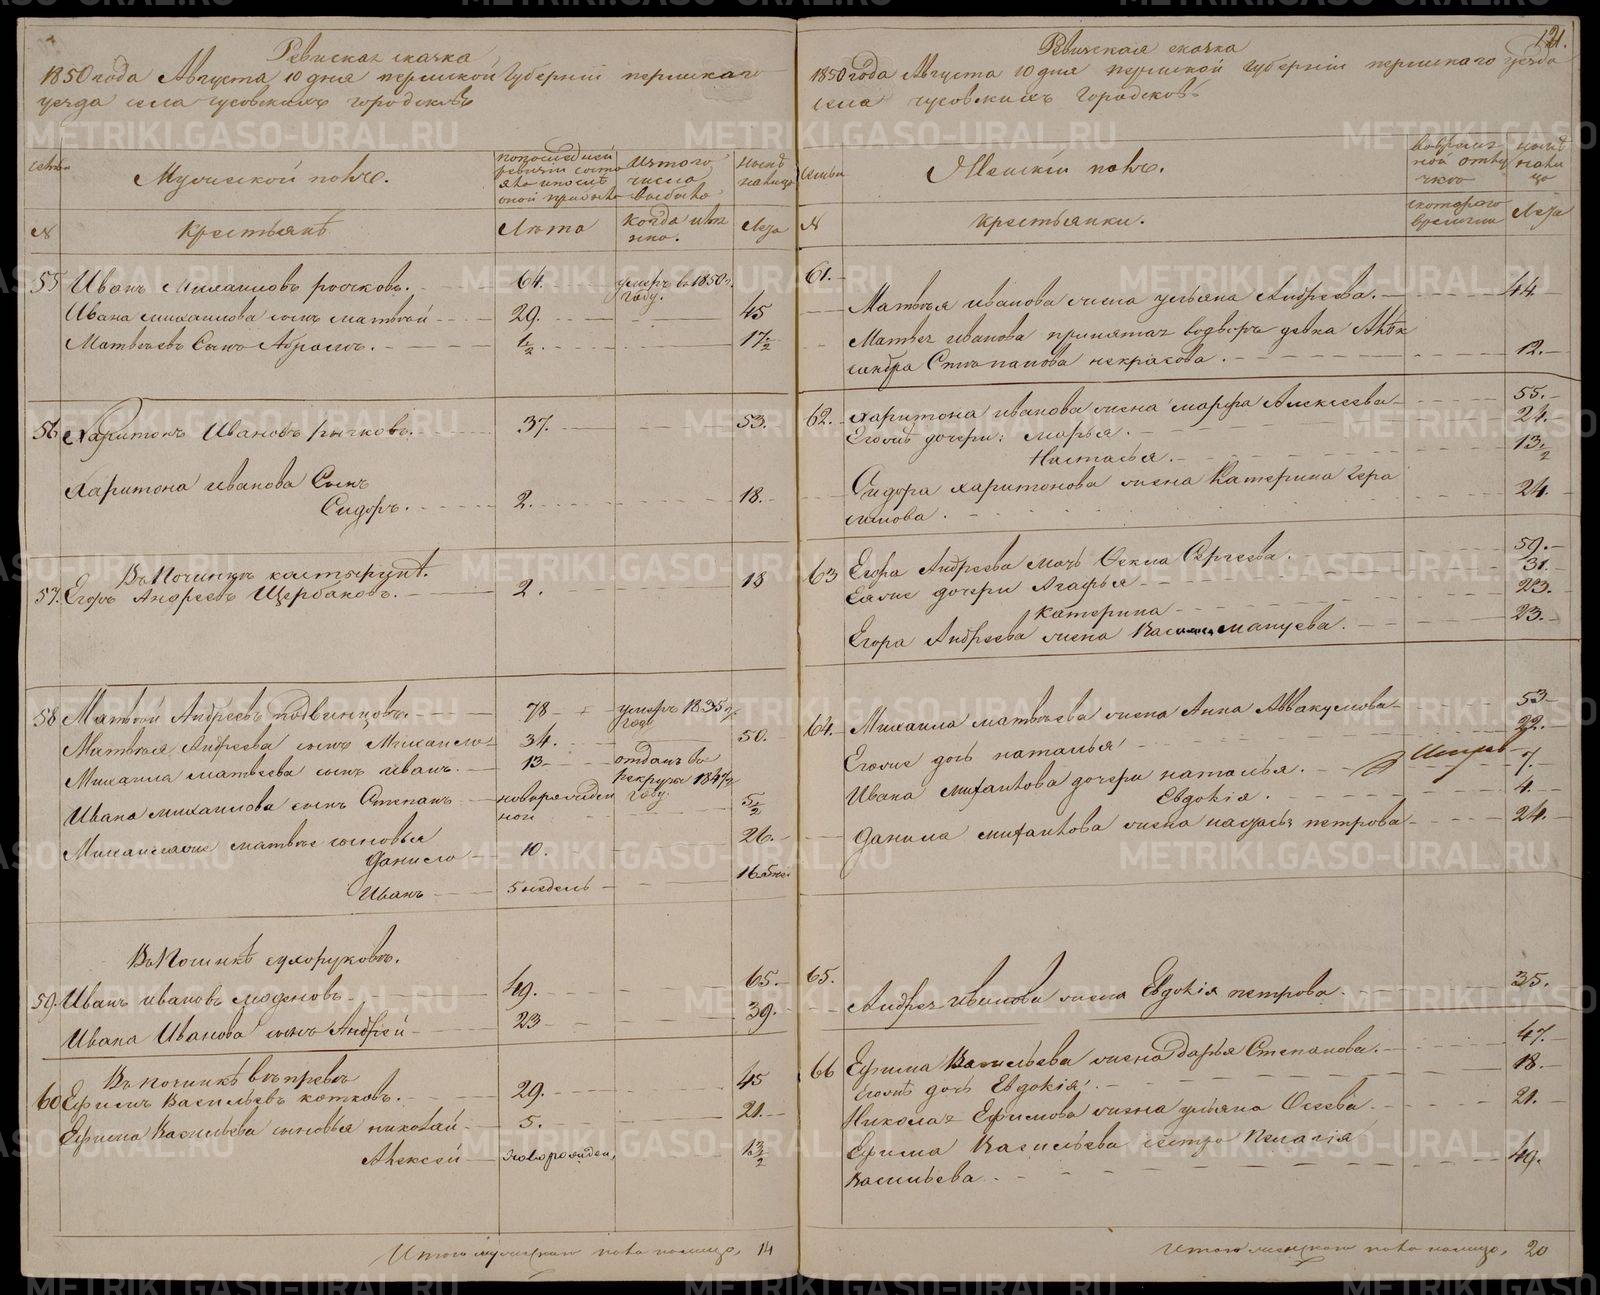 Ревиская сказка
1850 года Августа 10 дня пермской Губернiи пермскаго
уезда села чусовскихъ городковъ
Мужеской полъ.
№
крестьянъ
Лѣта
когда имянно.
Лета
55 Иванъ Михаиловъ рочковъ. 64. умеръ в 1850 г. году.
Ивана михаилова сынъ матвѣй 29. 45
Матвѣевъ Сынъ Абрамъ. 1/2. 17 1/2
56 Харитонъ Ивановъ рычковъ. 37. 53.
Харитона иванова Сынъ
Сидоръ. 2. 18.
Въ Починкѣ
57. Егоръ Андреевъ Щербаковъ. 2. 18
58 Матвѣй Андреевъ подвинцовъ. 78 умеръ 1835 годе
Матвѣя Андреева сынъ Михаило 34. 50.
Михаила матвеева сынъ иванъ. 13 отданъ в рекруты 1847 году.
Ивана михаилова сынъ Степанъ новорожденной 5 1/2
Михаиловые матвѣе сыновья
Данило 10. 26.
Иванъ 5 недель 16
Въ Починкѣ сухоруковъ.
59. Иванъ ивановъ 49. 65.
Ивана Иванова сынъ Андрей 23 39.
Въ починкѣ
60 Ефимъ Васильевъ котковъ. 29. 45
Ефима Васильева сыновья николай 5. 21.
Алексей новорожден, 13 1/2
Итого мужескаго пола налицо, 14
121.
Ревиская сказка
1850 года Августа 10 дня пермской Губернiи пермскаго уезда
села чусовскихъ Городковъ
семьи
Женскiй полъ.
№
крестьянки.
Лета
61.
Матвѣя иванова жена ульяна Андреева. 44.
Матвея иванова принятая водворъ девка Александра Степанова некрасова. 12.
62. Харитона иванова жена марфа Алексеева 55.
Еговые дочери: марья. 24.
Настасья. 13 1/2
Сидора харитонова жена Катерина Герасимова. 24.
63 Егора Андреева мать Фекла Сергеева. 59.
Еявые дочери Агафья 31.
Катерина 23.
Егора Андреева жена 23.
64. Михаила матвѣева жена Анна Аввакумова 53
Еговые дочь наталья 22.
Ивана михаилова дочери наталья. 7.
Евдокiя. 4.
Данила михаилова жена петрова 24.
65.
Андрея иванова жена Евдокiя петрова. 35.
66 Ефима Васильева жена Дарья Степанова. 47.
Еговые дочь Евдокiя. 18.
Николая Ефимова жена ульяна 21.
Ефима Васильева сестра Пелагiя
Васильева. 49.
Итого женскаго пола налицо, 20
METRIKI.GASO-URAL.RU